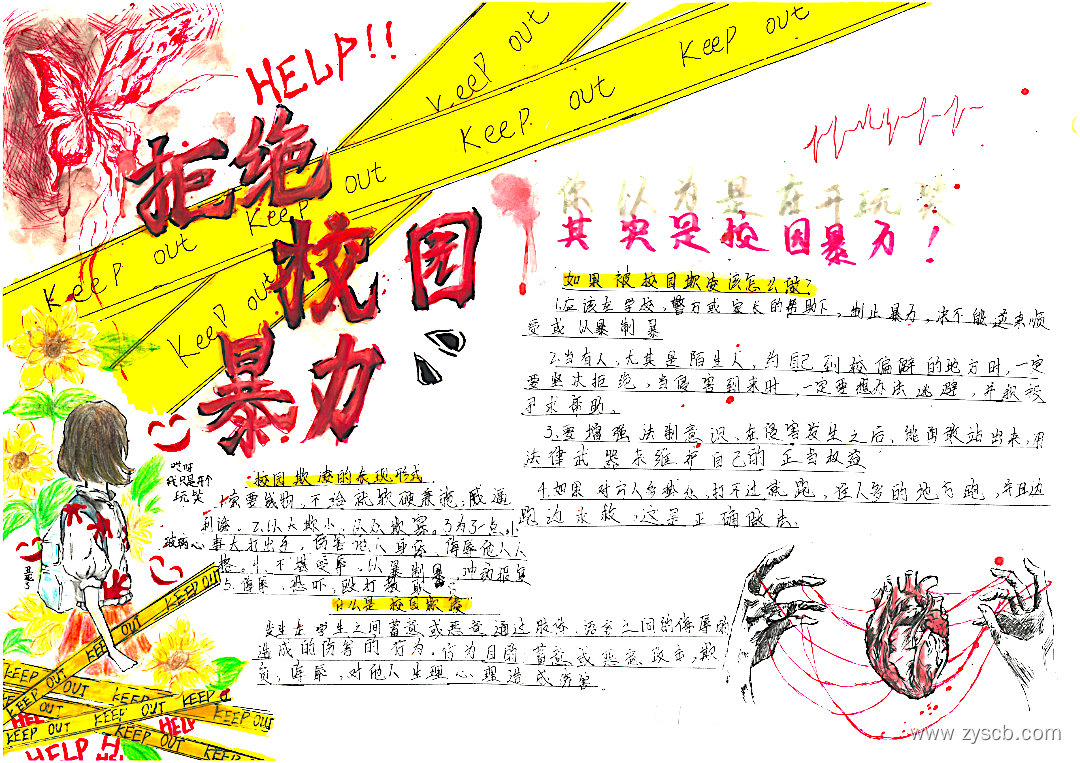 HELP!!
Keep out
Keep out
Keep out
Keep out
Keep out
Keep out
拒绝
校园
暴力
你以为是在开玩笑
其实是校园暴力!
如果被校园欺凌该怎么做?
1.应该在学校,警方或家长的帮助下,制止暴力,决不能逆来顺
受或以暴制暴
2.当有人,尤其是陌生人,约 到校偏僻的地方时,一定
要坚决拒绝,当侵害到来时,一定要想办法逃避,并积极
寻求帮助。
3.要增强法制意识,在侵害发生之后,能勇敢站出来,用
法律武器来维护自己的正当权益
4.如果对方人多势众,打不过就跑,往人多的地方跑,并且边
跑边求救,这是正确做法.
哎呀
我只是开个
玩笑
玻璃心
校园欺凌的表现形式
1.索要钱物,不给就软硬兼施,威逼
利诱。2.以大欺小,以众欺寡。3.为了一点小
事大打出手,伤害他人身体,侮辱他人人
格。4.不堪受辱,以暴制暴,冲动报复
5.侮辱,恐吓,殴打教
什么是校园欺凌
发生在学生之间蓄意或恶意通过肢体,语言之间的侮辱
造成的伤害的行为,行为目的 蓄意或恶意攻击,欺
负,侮辱,对他人生理心理造成伤害
KEEP OUT
OUT
KEEP OUT
KEEP OUT
KEEP OUT
KEEP OUT
KEEP OUT
KEEP OUT
KEEP OUT
HELP
HELP
HELP H
www.zyscb.com